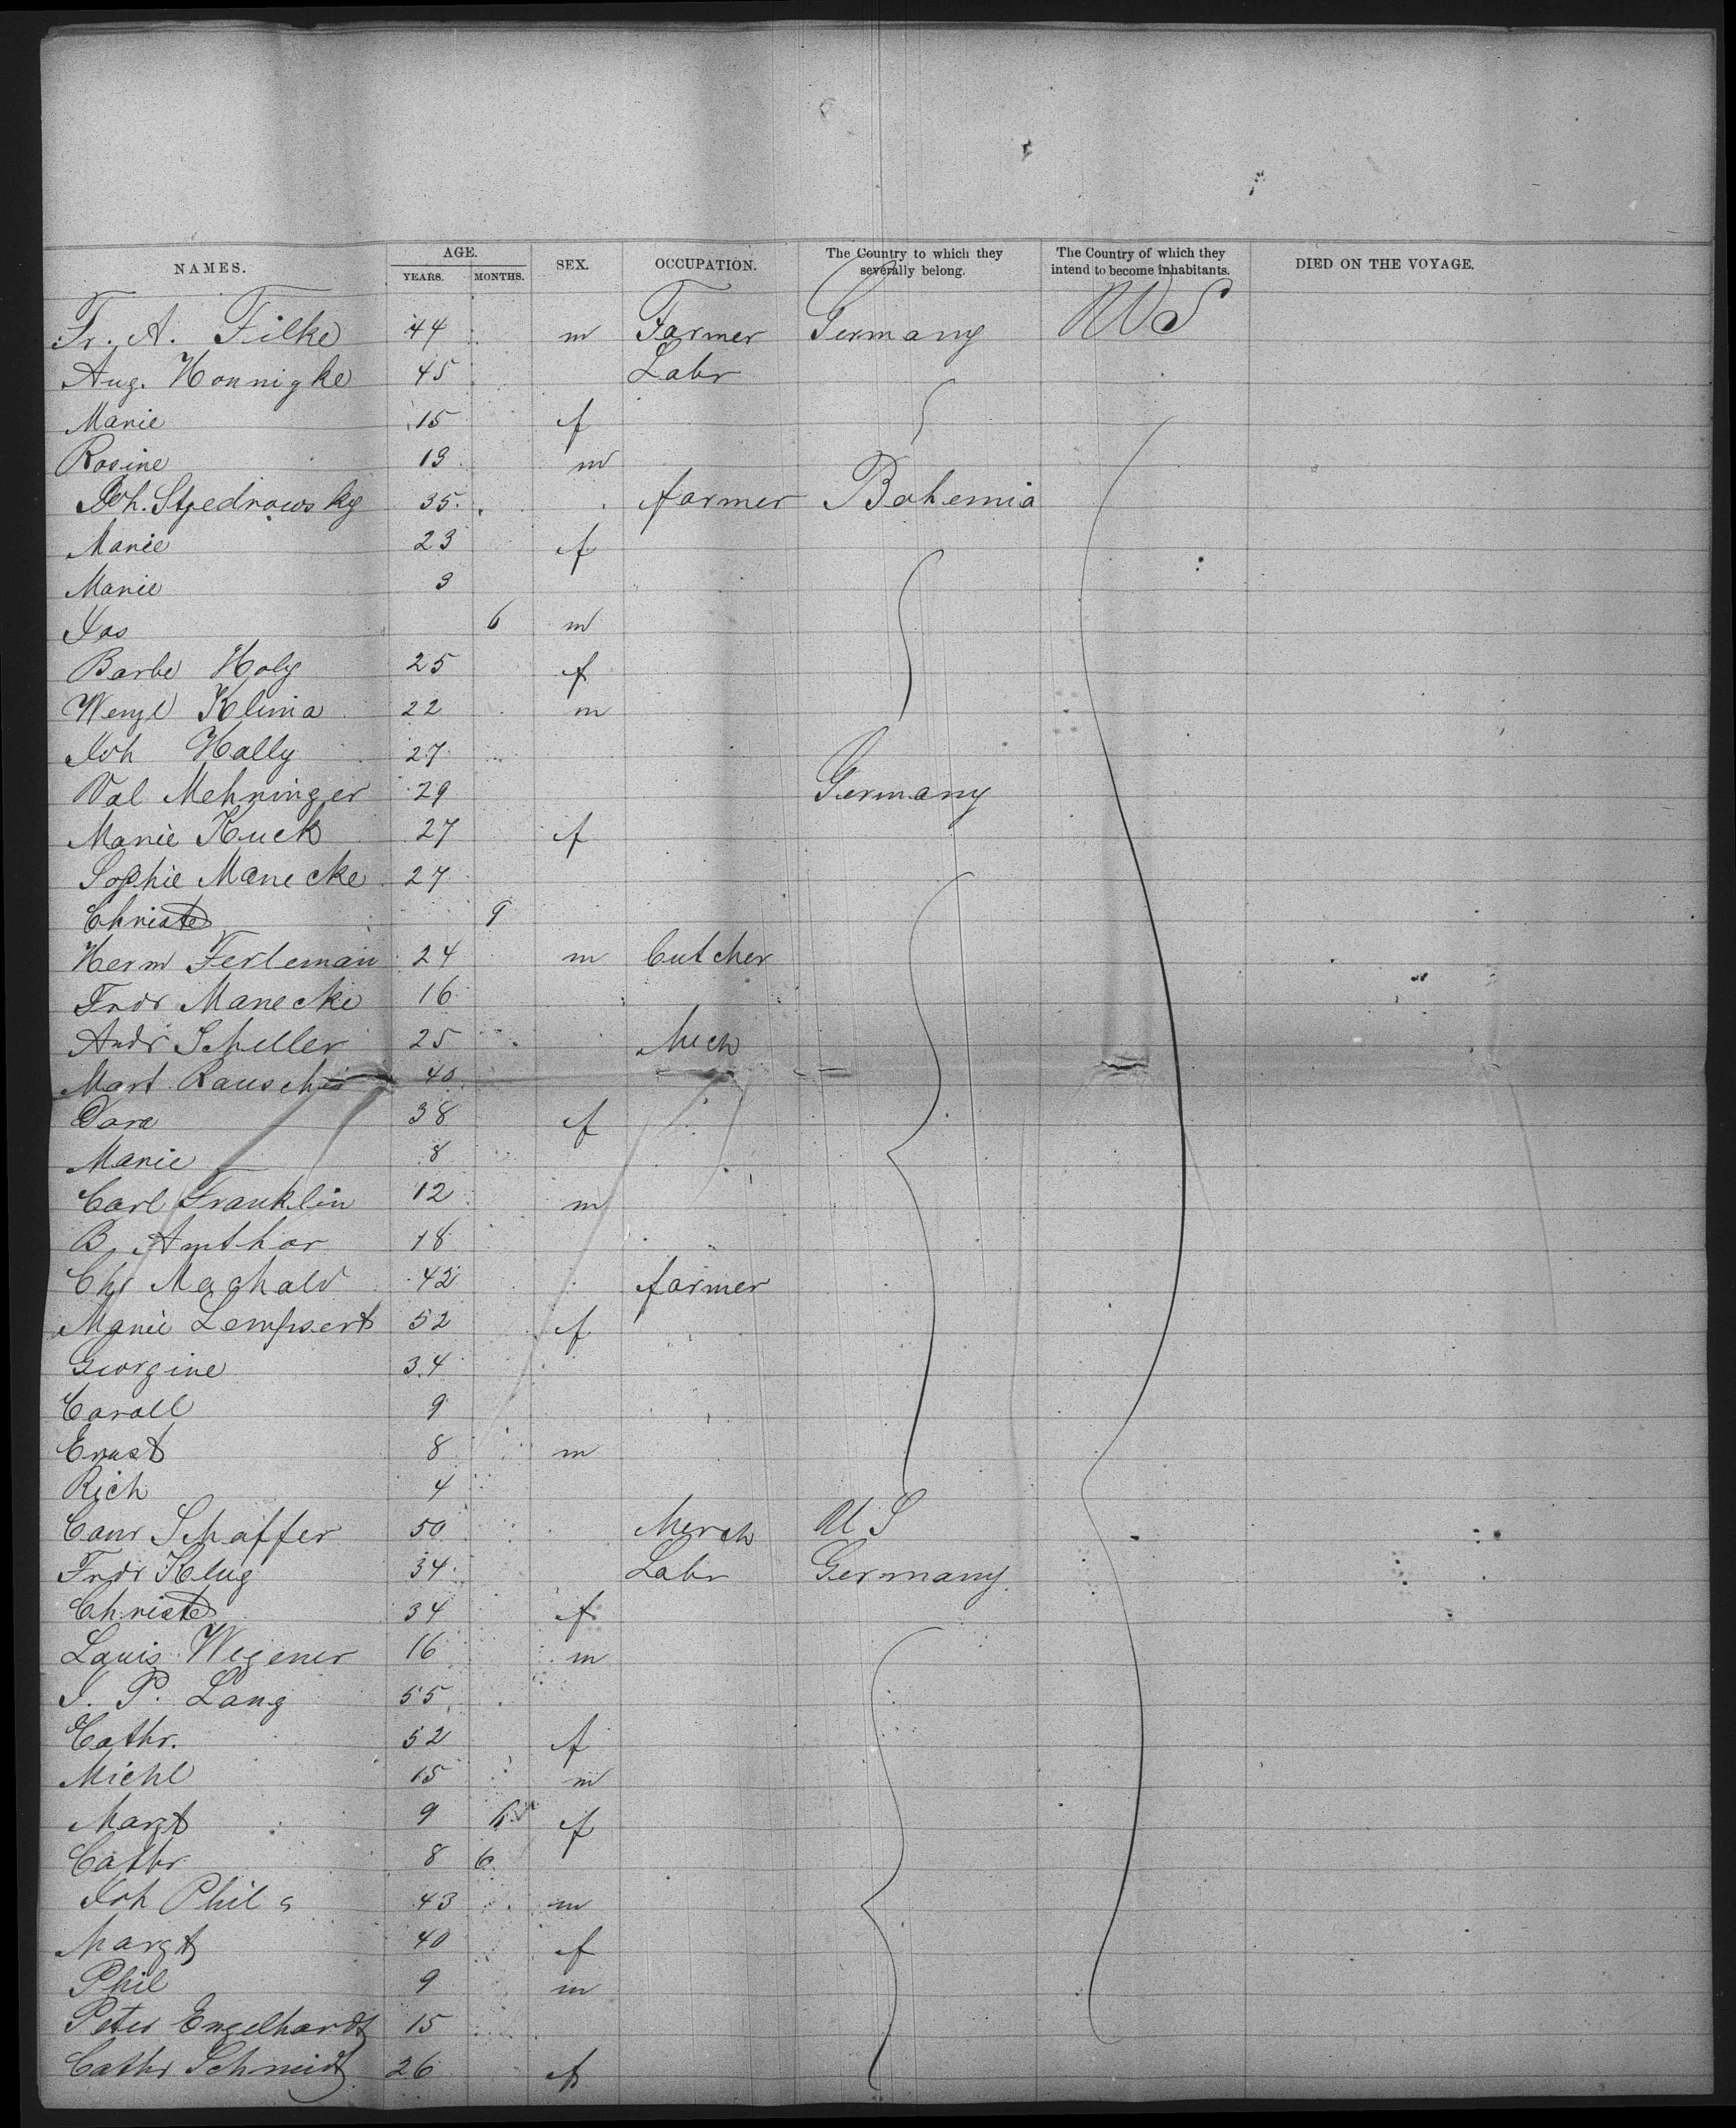 NAMES. AGE. YEARS. MONTHS. SEX. OCCUPATION. The Country to which they severally belong. The Country of which they intend to become inhabitants. DIED ON THE VOYAGE.
Fr. A. Filke 44 m Farmer Germany US
Aug. Honnigke 45 Labr
Marie 15 f
Rosine 13 m
Joh. Stpedrowsky 35 farmer Bohemia
Marie 23 f
Marie 3
Jos 6 m
Barbe Holy 25 f
Wenzl Klima 22 m
Joh Hally 27
Val Mehringer 29 Germany
Marie Kuck 27 f
Sophie Manecke 27
Christe 9
Herm Ferleman 24 m butcher
Fridr Manecke 16
Andr Schiller 25 Mech
Mart Rausche 40
Dora 38 f
Marie 8
Carl Franklin 12 m
B. Amthor 18
Chr Machald 42 farmer
Marie Lempsert 52 f
Georgine 34
Caroll 9
Ernst 8 m
Rich 4
Conr Schaffer 50 Merch US
Fridr Klug 34 Labr Germany
Christe 34 f
Louis Wegener 16 m
J. P. Lang 55
Cathr. 52 f
Michl 15 m
Margt 9 6 f
Cathr 8 6
Joh Phil 43 m
Margt 40 f
Phil 9 m
Peter Engelhardt 15
Cathr Schmidt 26 f